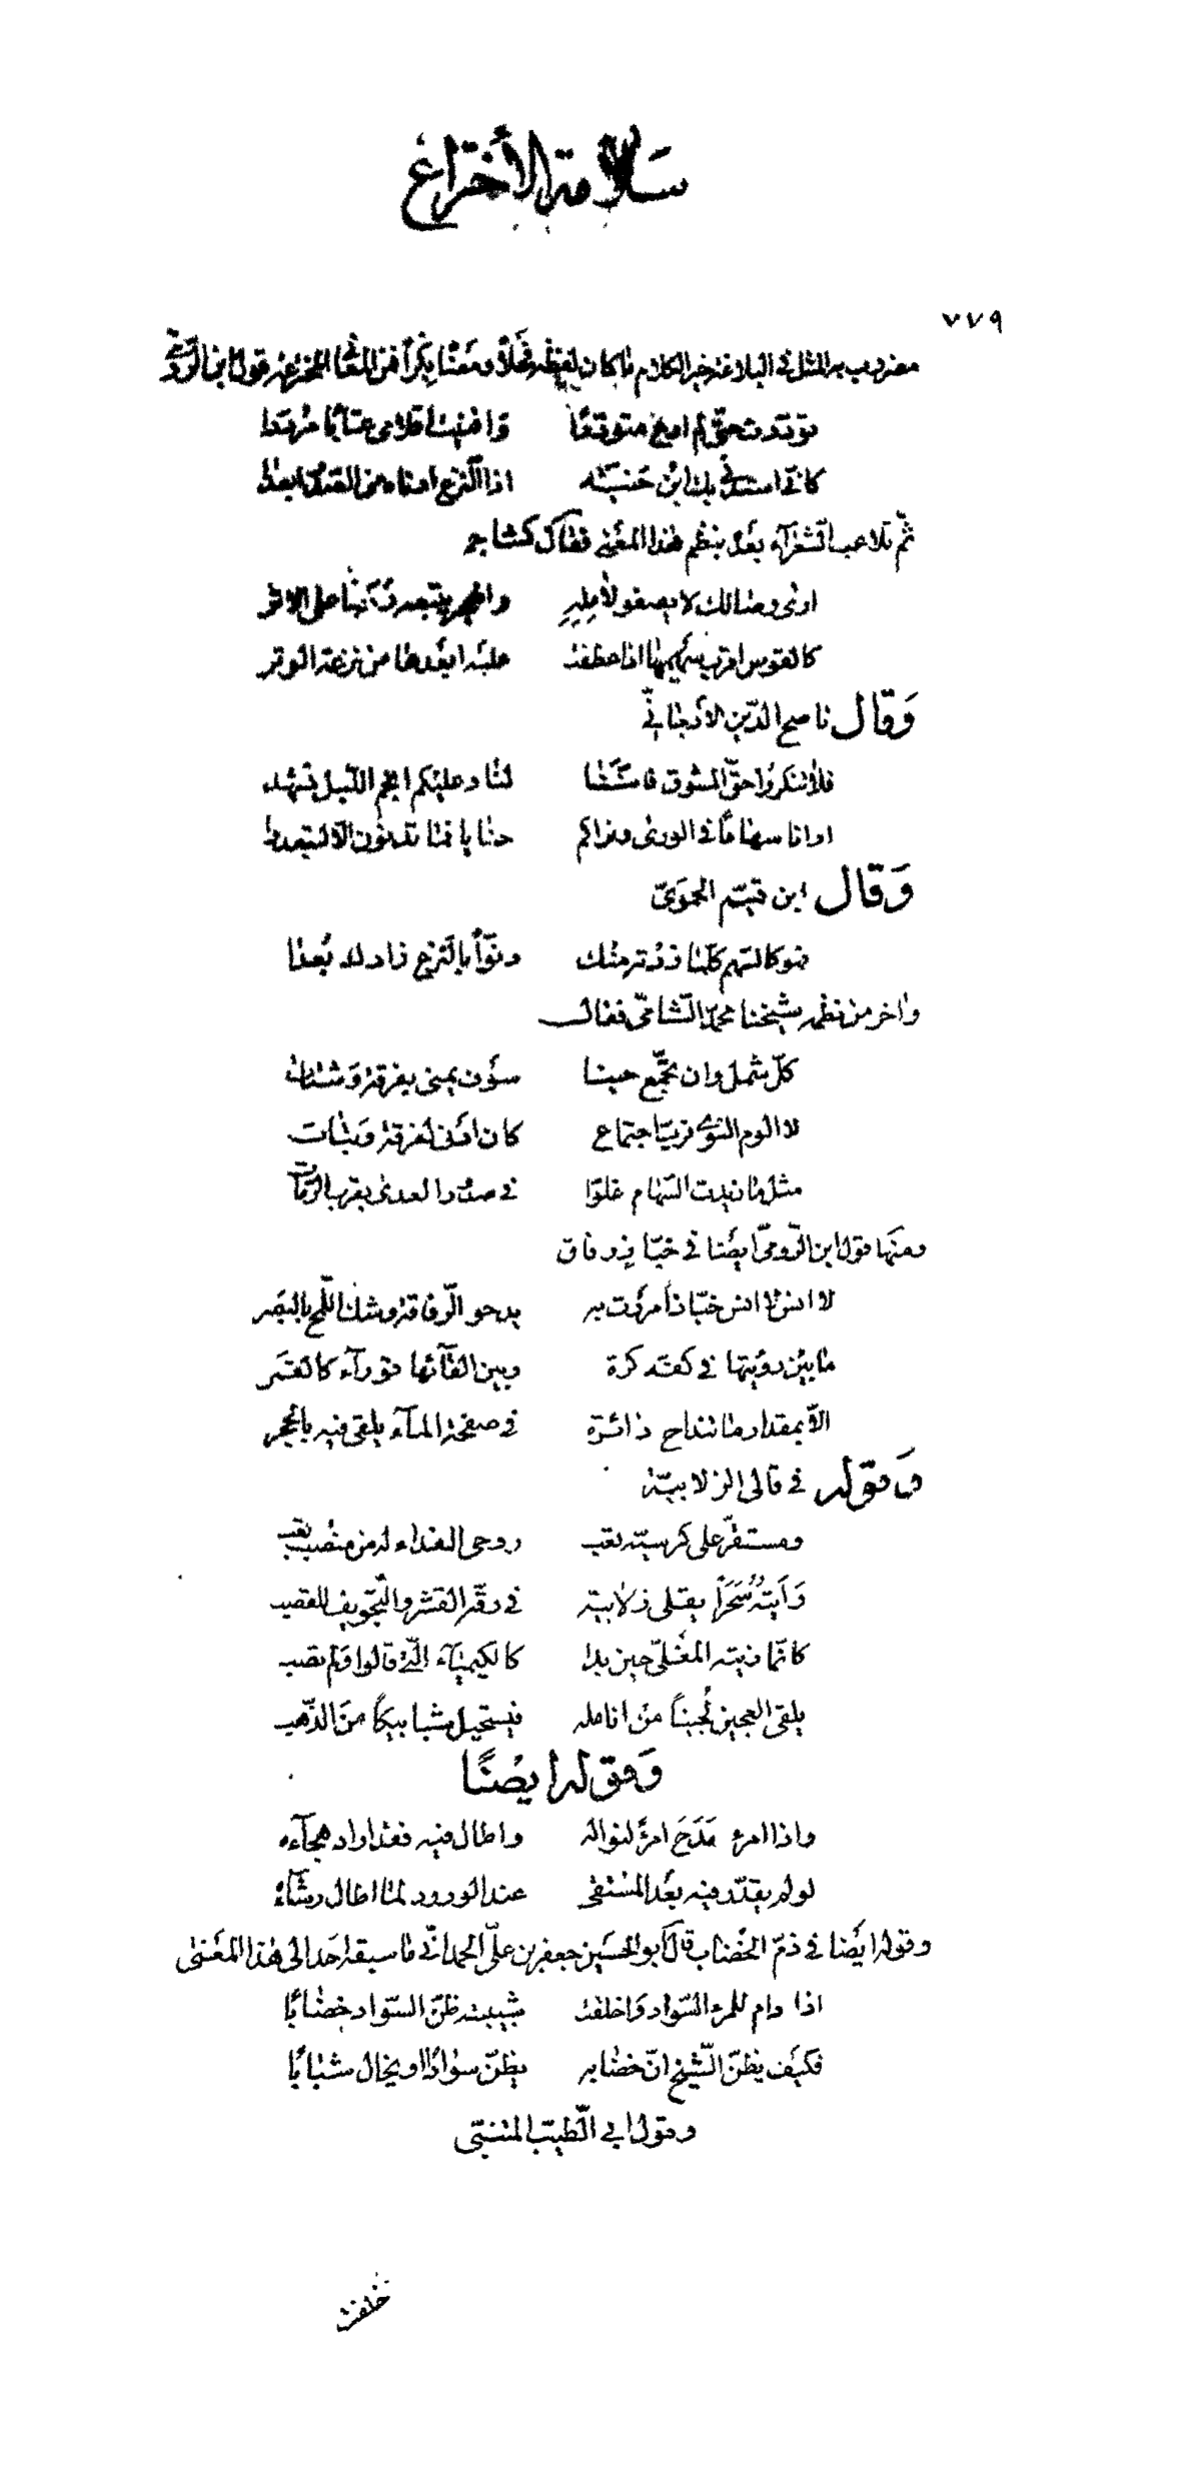 سَلامة الأختراع
٧٧٩
يضرب به المثل في البلاغة خير الكلام ما كان لفظه فحلاً ومعناه بكراً فمن المعاني المخترعة قول ابن الرومي
توددت حتى لم اجد متوددًا وافنيت اقلامي عتابًا مرددا
كاني استدني بك ابن حنيّته اذا النزع ادناه من الصدر ابعدا
ثم تلاعب الشعرآء بعد بنظم هذا المعنى فقال كشاجم
ارى وصالك لا يصفو لآمله والهجر يتبعه ركضا على الاثر
كالقوس اقرب سهميها اذا عطفت عليه ابعدها من نزعة الوتر
وَقال ناصح الدّين الأرجاني
فلا تنكروا حقّ المشوق فانّنا لنا وعليكم انجم الليل تشهد
ارانا سهاما في الورى ونراكم حنايا فما تدنون الّا لنبعدا
وَقال ابن قسيم الحموي
فهو كالسهم كلّما زدته منك دنوّاً بالنزع زادك بُعدا
واخر من نظمه شيخنا محمّد الشاميّ فقال
كلّ شمل وان تجمّع حينا سوف يمنى بفرقة وشتات
لا الوم النوى فربّ اجتماع كان ادنى لفرقة وبتات
مثل ما زيدت السهام غلوّا في صدور العدى بقرب الرماة
ومنها قول ابن الرومي ايضا في خبّاز رقاق
لا انس لا انس خبّازا مررت به يدحو الرقاقة وشك اللمح بالبصر
ما بين رؤيتها في كفّه كرة وبين القآئها قورآء كالقمر
الّا بمقدار ما تنداح دائرة في صفحة المآء يلقى فيه بالحجر
وَقوله في قالي الزلابية
ومستقرّ على كرسيّه تعب روحي الفداء له من منصب نصب
رأيته سَحَراً يقلي زلابية في رقّة القشر والتجويف كالقصب
كانّما زيته المغليّ حين بدا كالكيميآء الّتي قالوا ولم تصب
يلقي العجين لُجيناً من انامله فيستحيل شبابيكًا من الذّهب
وَقوله ايضًا
واذا امرء مَدَحَ امرءً لنواله واطال فيه فقد اراد هجآءه
لو لم يقدّر فيه بعد المستقى عند الورود لما اطال رشآءه
وقوله ايضا في ذمّ الخضاب قال ابو الحسين جعفر بن عليّ الحمداني ما سبقه احد الى هذا المعنى
اذا دام للمرء السّواد واخلقت شبيبته ظنّ السّواد خضابًا
فكيف يظنّ الشّيخ انّ خضابه يظنّ سوادًا او يخال شبابًا
وقول ابي الطيّب المتنبّي
خلفت